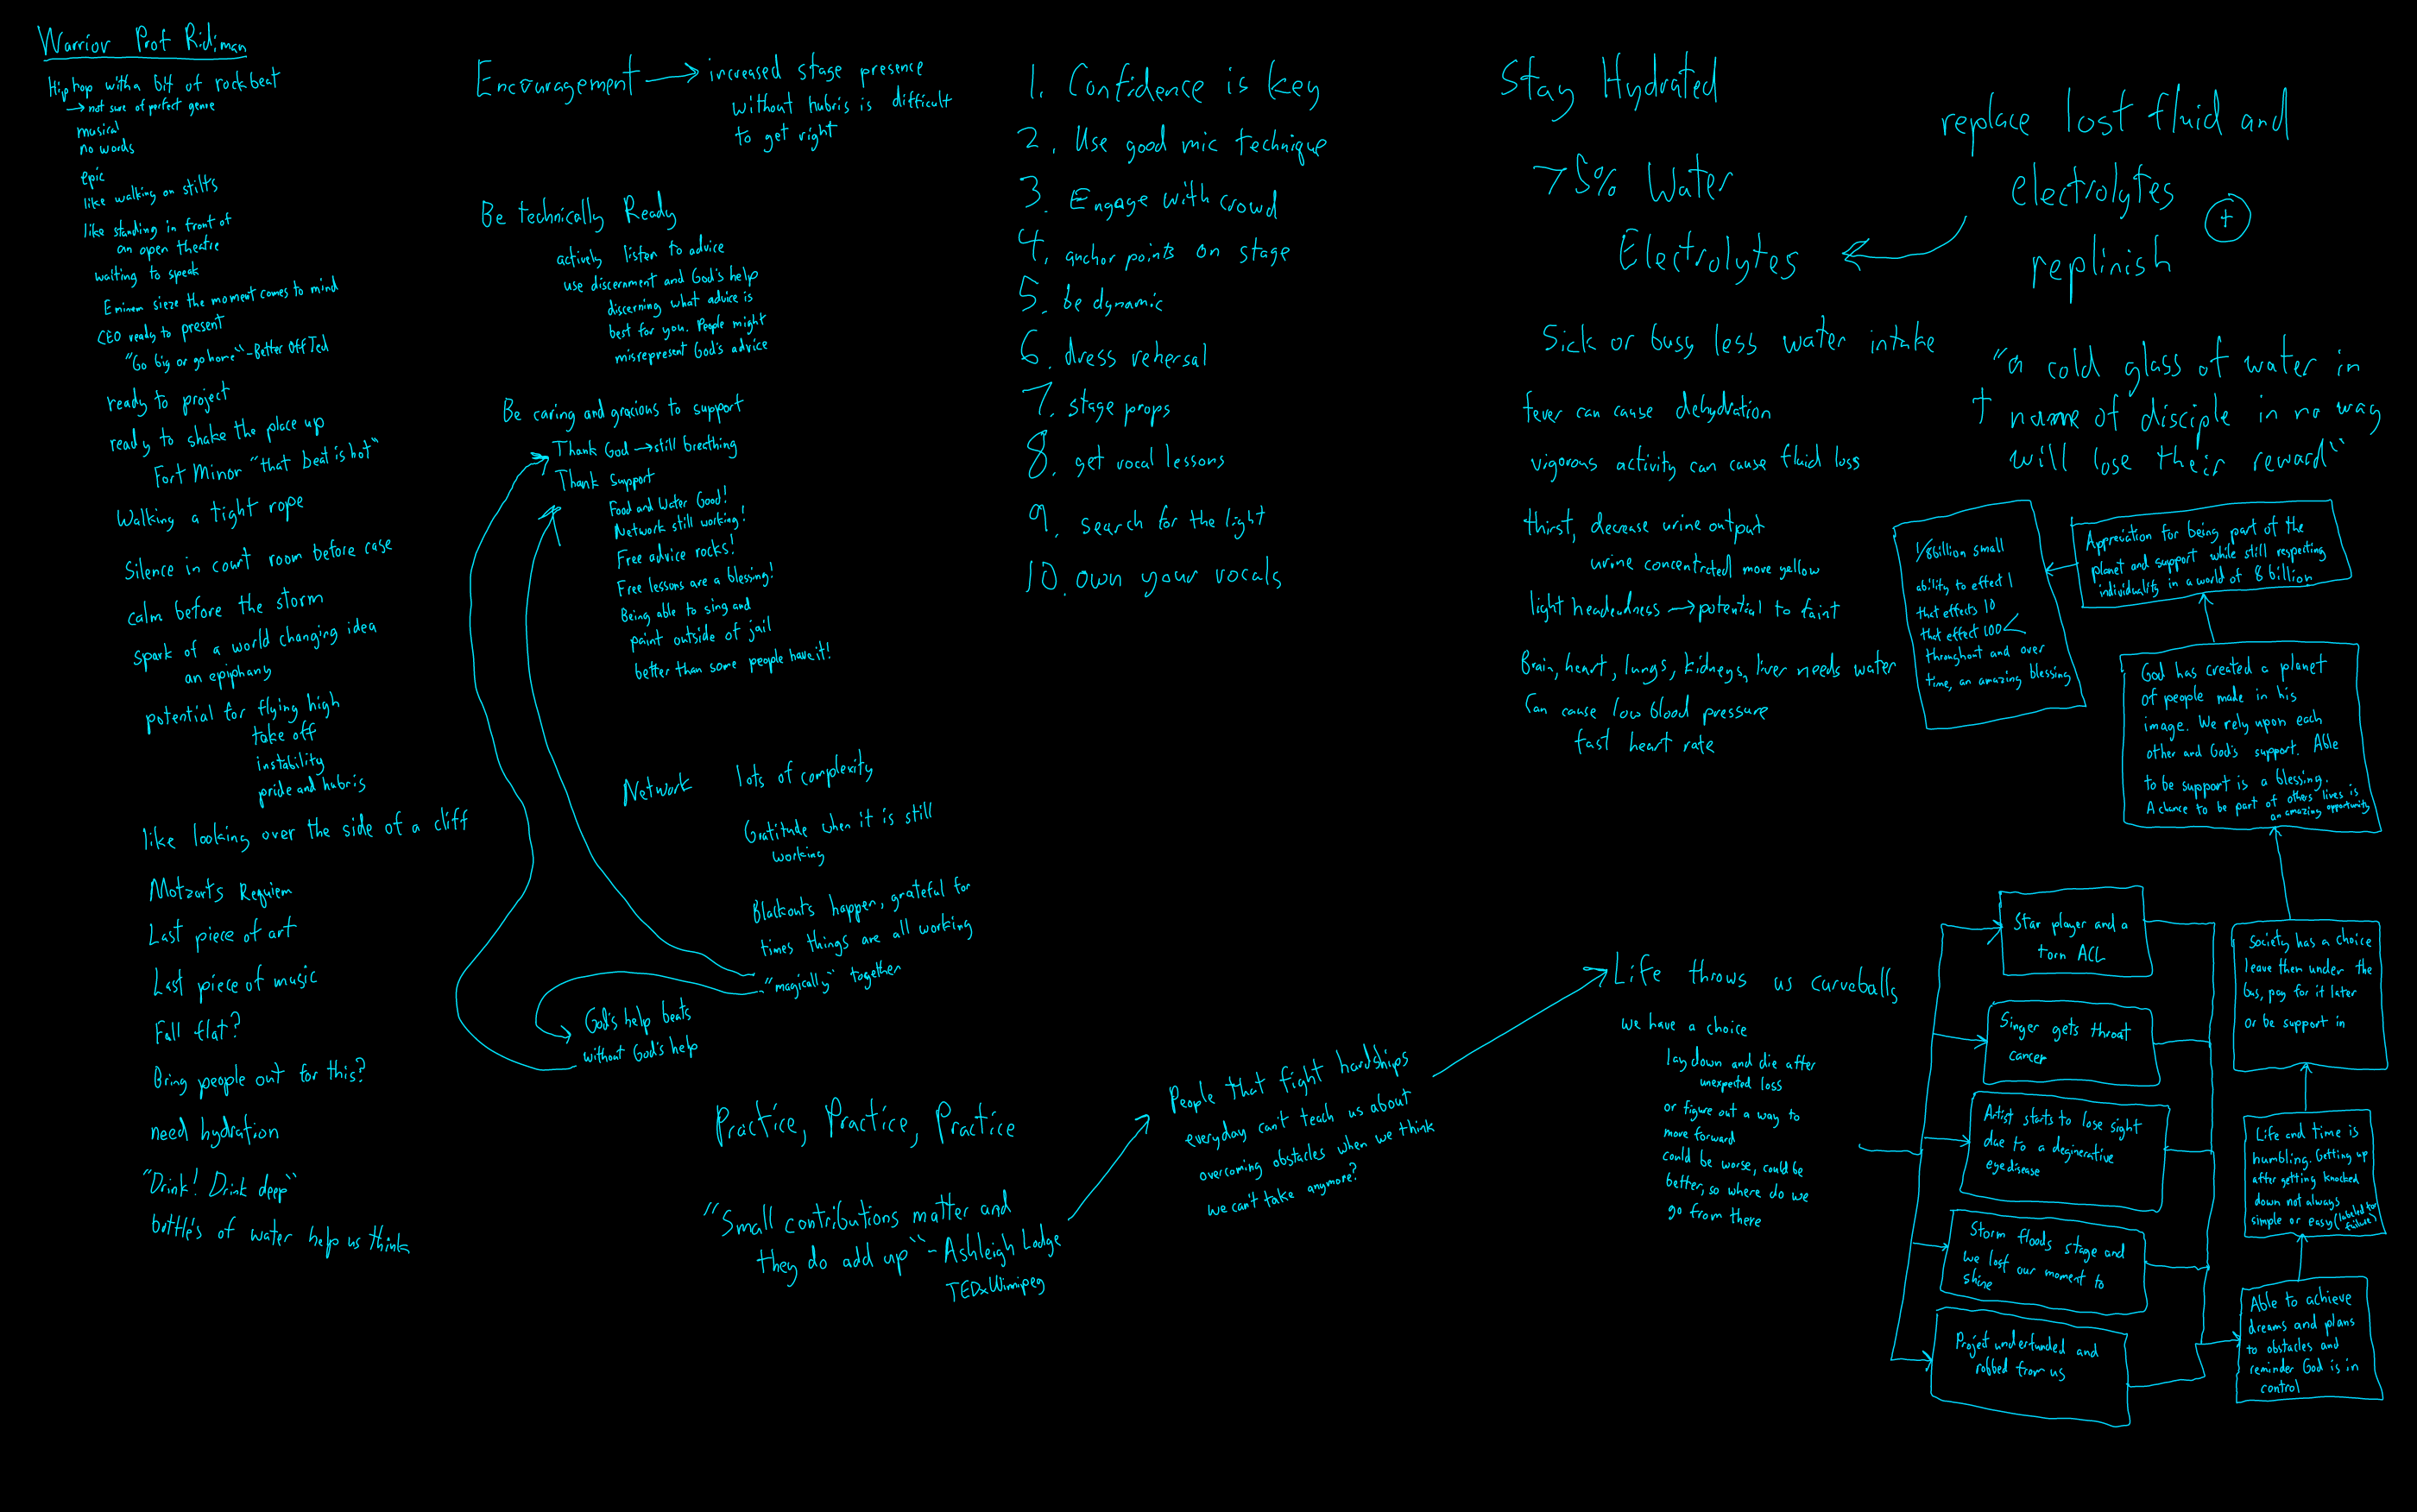 Warrior Prof Ridiman
Hip hop with a bit of rock beat
→ not sure of perfect genre
musical
no words
epic
like walking on stilts
like standing in front of
an open theatre
waiting to speak
Eminem sieze the moment comes to mind
CEO ready to present
"Go big or go home" - Better Off Ted
ready to project
ready to shake the place up
Fort Minor "that beat is hot"
Walking a tight rope
Silence in court room before case
calm before the storm
spark of a world changing idea
an epiphany
potential for flying high
take off
instability
pride and hubris
like looking over the side of a cliff
Motzarts Requiem
Last piece of art
Last piece of music
Fall flat?
Bring people out for this?
need hydration
"Drink! Drink deep"
bottle's of water help us think
Encouragement → increased stage presence
without hubris is difficult
to get right
Be technically Ready
actively listen to advice
use discernment and God's help
discerning what advice is
best for you. People might
misrepresent God's advice
Be caring and gracious to support
Thank God → still breathing
Thank Support
Food and Water Good!
Network still working!
Free advice rocks!
Free lessons are a blessing!
Being able to sing and
paint outside of jail
better than some people have it!
Network lots of complexity
Gratitude when it is still
working
Blackouts happen, grateful for
times things are all working
"magically" together
God's help beats
without God's help
Practice, Practice, Practice
"Small contributions matter and
they do add up" - Ashleigh Lodge
TEDxWinnipeg
1. Confidence is key
2. Use good mic technique
3. Engage with crowd
4. anchor points on stage
5. be dynamic
6. dress rehersal
7. stage props
8. get vocal lessons
9. search for the light
10. own your vocals
People that fight hardships
everyday can't teach us about
overcoming obstacles when we think
we can't take anymore?
Stay Hydrated
75% Water
Electrolytes
replace lost fluid and
electrolytes
replinish +
Sick or busy less water intake
fever can cause dehydration
vigorous activity can cause fluid loss
thirst, decrease urine output
urine concentrated more yellow
light headedness → potential to faint
Brain, heart, lungs, kidneys, liver needs water
Can cause low blood pressure
fast heart rate
"a cold glass of water in
† name of disciple in no way
will lose their reward"
Life throws us curveballs
we have a choice
lay down and die after
unexpected loss
or figure out a way to
move forward
could be worse, could be
better, so where do we
go from there
Star player and a
torn ACL
Singer gets throat
cancer
Artist starts to lose sight
due to a deginerative
eye disease
Storm floods stage and
we lost our moment to
shine
Project underfunded and
robbed from us
Able to achieve
dreams and plans
to obstacles and
reminder God is in
control
Life and time is
humbling. Getting up
after getting knocked
down not always
simple or easy (labeled for
failure)
Society has a choice
leave then under the
bus, pay for it later
or be support in
God has created a planet
of people made in his
image. We rely upon each
other and God's support. Able
to be support is a blessing.
A chance to be part of others lives is
an amazing opportunity
Appreciation for being part of the
planet and support while still respecting
individuality in a world of 8 billion
1/8 billion small
ability to effect 1
that effects 10
that effect 100
throughout and over
time, an amazing blessing